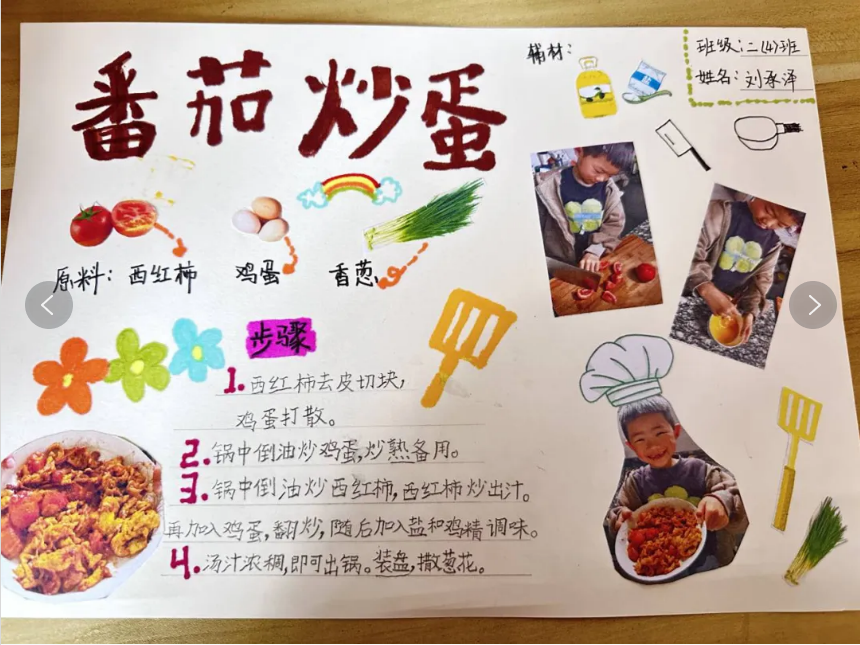 番茄炒蛋
辅材:
班级:二(4)班
姓名:刘承泽
原料: 西红柿 鸡蛋 香葱
步骤
1.西红柿去皮切块,
鸡蛋打散。
2.锅中倒油炒鸡蛋,炒熟备用。
3.锅中倒油炒西红柿,西红柿炒出汁。
再加入鸡蛋,翻炒,随后加入盐和鸡精调味。
4.汤汁浓稠,即可出锅。装盘,撒葱花。